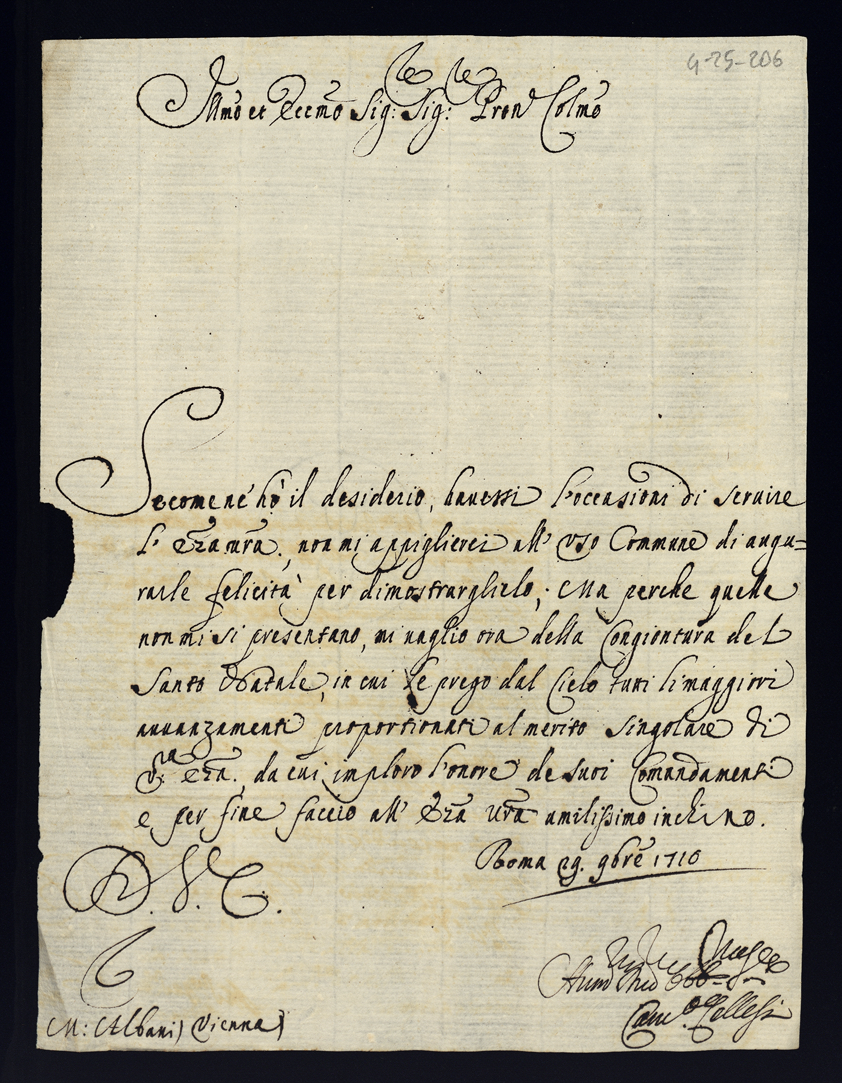 4-25-206
Illmo et Eccmo Sig: Sig: Pron Colmo
Se come né hò il desiderio, havessi l'occasioni di servire
l' Ecza vra., non mi appiglierei all' uso Commune di augu=
rarle felicità per dimostrarglielo; Ma perche quelle
non mi si presentano, mi vaglio ora della Congiontura del
Santo Natale, in cui le prego dal Cielo tutti li maggiori
avvanzamenti proportionati al merito singolare di
V.ra Ecza. da cui imploro l'onore de suoi Comandamenti
e per fine faccio all' Ecza Vra umilissimo inchino.
Roma 29. 9bre 1710
D. V. E.
Obb
M: Albani) Vienna)